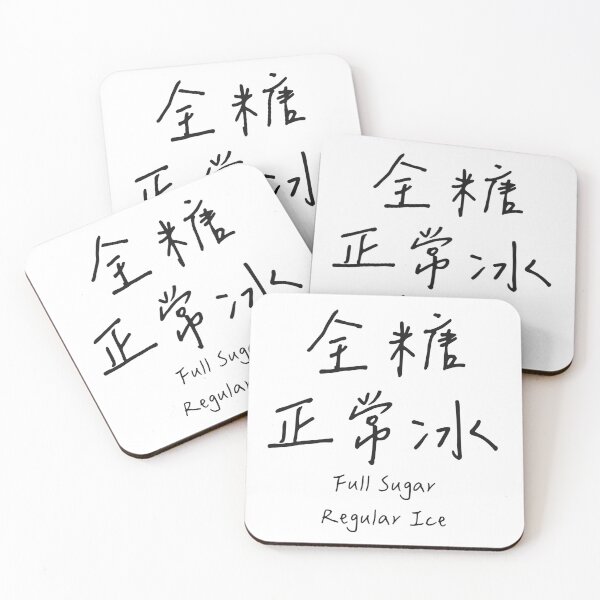 全糖
正常冰
全糖
正常冰
全糖
正常冰
Full Sugar
Regular
全糖
正常冰
Full Sugar
Regular Ice